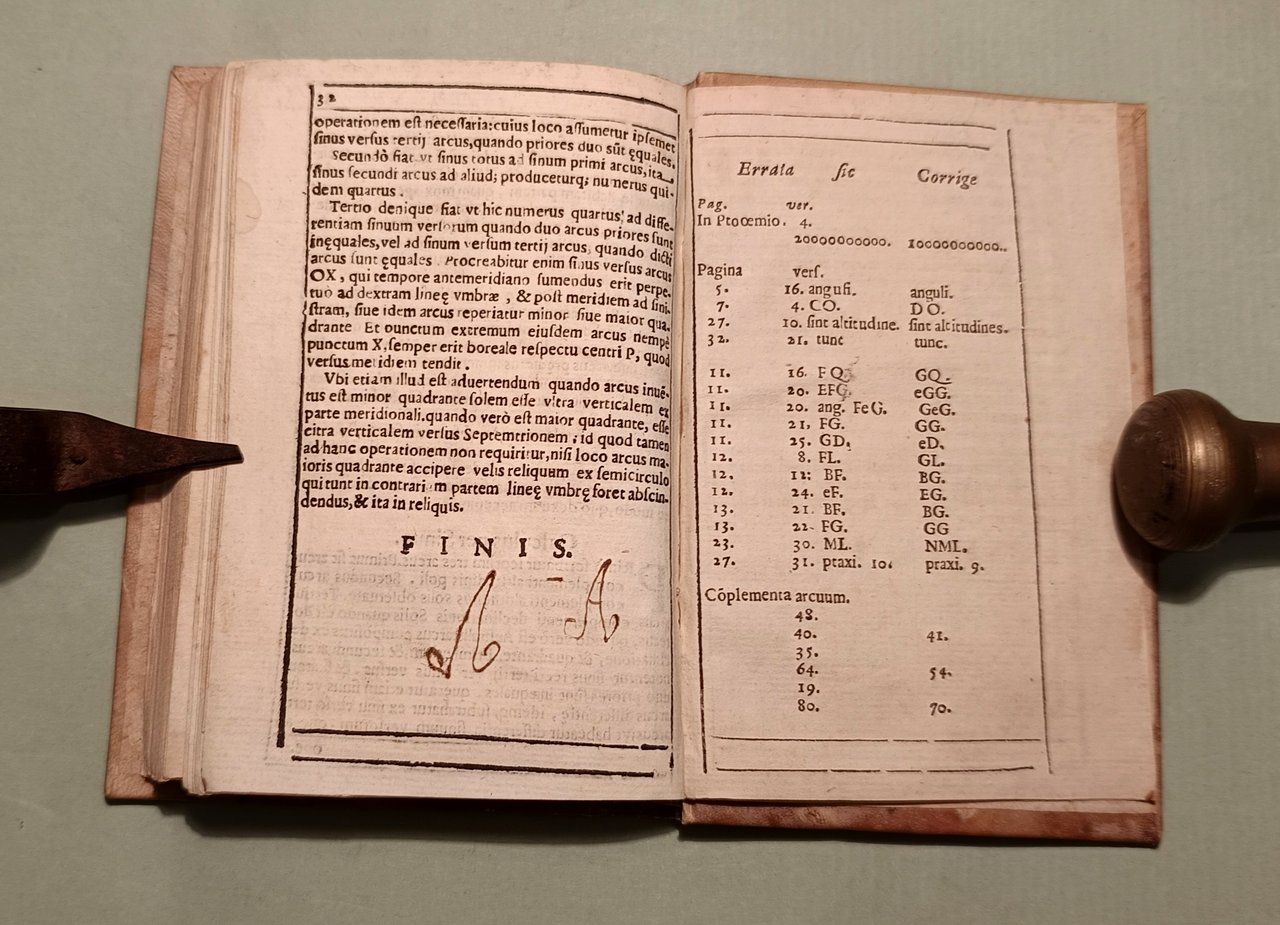 32
operationem est necessaria: cuius loco assumetur ipsemet
sinus versus tertij arcus, quando priores duo sũt ęquales.
Secundò fiat vt sinus totus ad sinum primi arcus, ita
sinus secundi arcus ad aliud; produceturq; numerus qui-
dem quartus.
Tertio denique fiat vt hic numerus quartus ad diffe-
rentiam sinuum versorum quando duo arcus priores sunt
inęquales, vel ad sinum versum tertij arcus, quando dicti
arcus sunt ęquales. Procreabitur enim sinus versus arcus
OX, qui tempore antemeridiano sumendus erit perpe-
tuò ad dextram lineę vmbræ, & post meridiem ad sini-
stram, siue idem arcus reperiatur minor siue maior qua-
drante Et punctum extremum eiusdem arcus nempè
punctum X, semper erit boreale respectu centri P, quod
versus meridiem tendit.
Vbi etiam illud est aduertendum quando arcus inuẽ-
tus est minor quadrante solem esse vltra verticalem ex
parte meridionali. quando verò est maior quadrante, esse
citra verticalem versus Septemtrionem; id quod tamen
ad hanc operationem non requiritur, nisi loco arcus ma-
ioris quadrante accipere velis reliquum ex semicirculo
qui tunt in contrariam partem lineę vmbrę foret abscin-
dendus, & ita in reliquis.
FINIS.
A A
Errata sic Corrige
Pag. ver.
In Ptoœmio. 4.
20000000000. 10000000000..
Pagina vers.
5. 16. angusi. anguli.
7. 4. CO. DO.
27. 10. sint altitudine. sint altitudines.
32. 21. tunt tunc.
11. 16. FQ. GQ.
11. 20. EFG. eGG.
11. 20. ang. FeG. GeG.
11. 21, FG. GG.
11. 25. GD. eD.
12. 8. FL. GL.
12. 12: BF. BG.
12. 24. eF. EG.
13. 21. BF. BG.
13. 22. FG. GG
23. 30. ML. NML.
27. 31. praxi. 10. praxi. 9.
Cõplementa arcuum.
48.
40. 41.
35.
64. 54.
19.
80. 70.